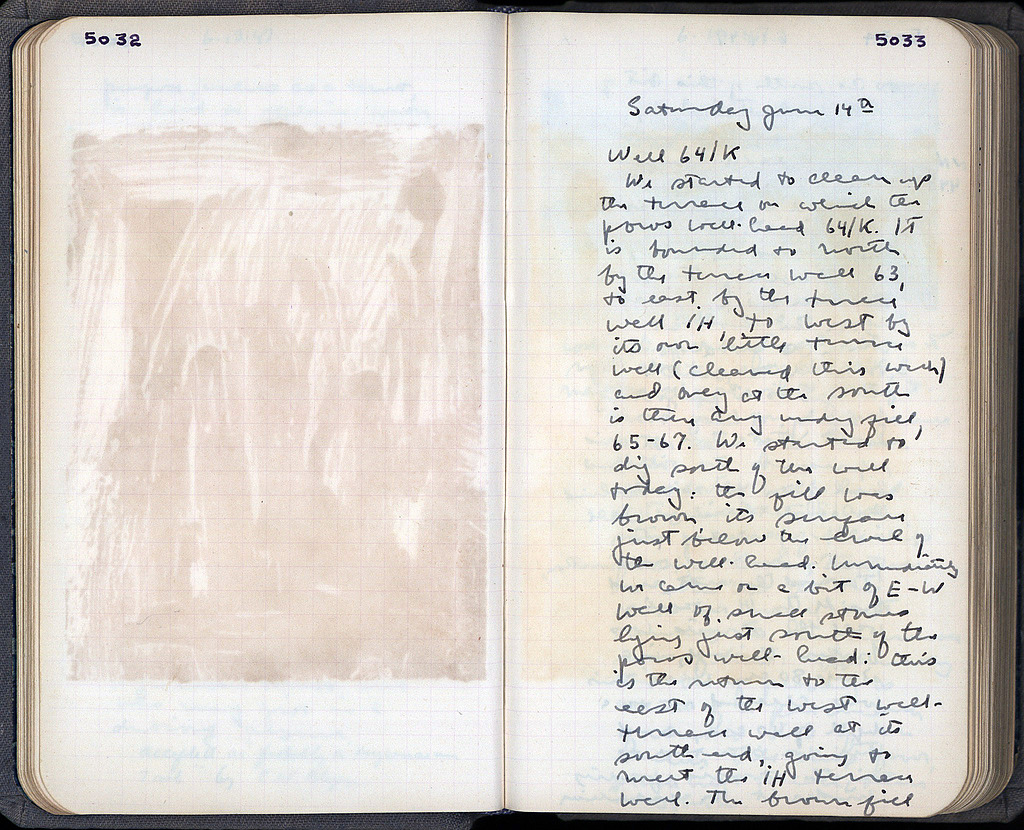 5032
5033
Saturday June 14th
Well 64/K
We started to clean up
the terrace on which the
poros well-head 64/K. It
is bounded to north
by the terrace wall 63,
to east by the terrace
wall 1H, to west by
its own little terrace
wall (cleaned this week)
and only at the south
is there any fill,
65-67. We started to
dig south of the well
today: the fill was
brown, its surface
just below the level of
the well-head. Immediately
we came on a bit of E-W
wall of small stones
lying just south of the
poros well-head: this
is the return to the
east of the west well-
terrace wall at its
south end, going to
meet the 1H terrace
wall. The brown fill